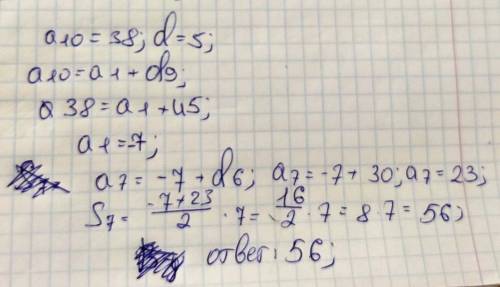 a10 = 38; d = 5;
a10 = a1 + d9;
a 38 = a1 + 45;
a1 = -7;
a7 = -7 + d6; a7 = -7 + 30; a7 = 23;
S7 = (-7+23)/2 · 7 = 16/2 · 7 = 8 7 = 56;
ответ: 56;